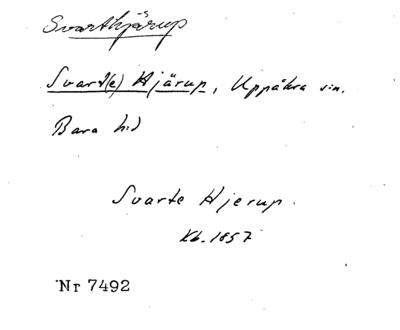 Svarthjärup
Svart(e) Hjärup, Uppåkra sn.
Bara hd
Svarte Hjerup.
Kb. 1857
Nr 7492